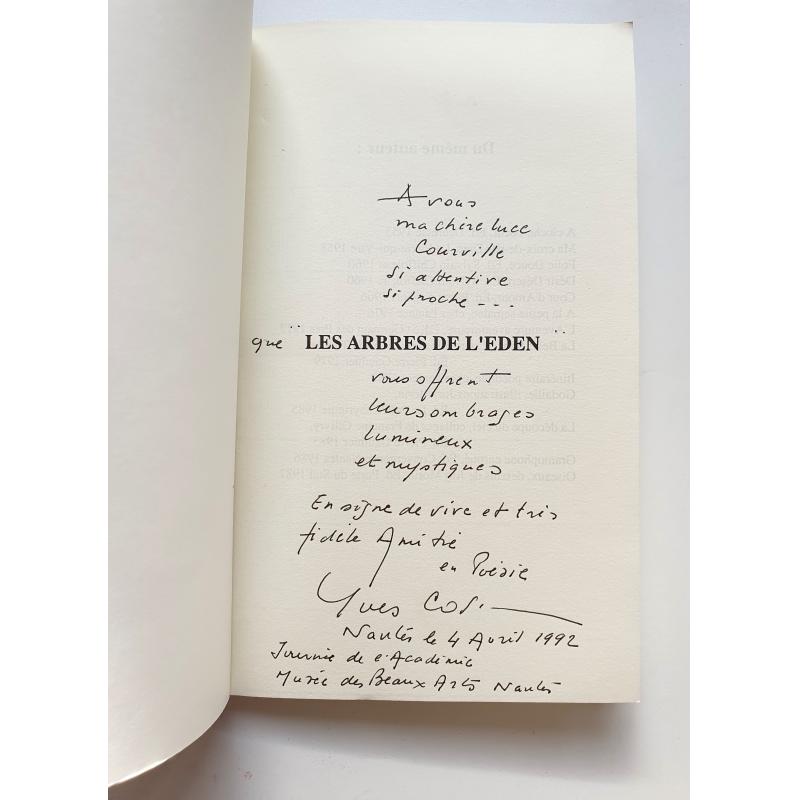 A vous
ma chère Luce
Courville
si attentive
si proche ---
que "LES ARBRES DE L'EDEN"
vous offrent
leurs ombrages
lumineux
et mystiques
En signe de vive et très
fidèle Amitié
en Poésie
Yves Cos
Nantes le 4 Avril 1992
Journée de l'Académie
Musée des Beaux Arts Nantes